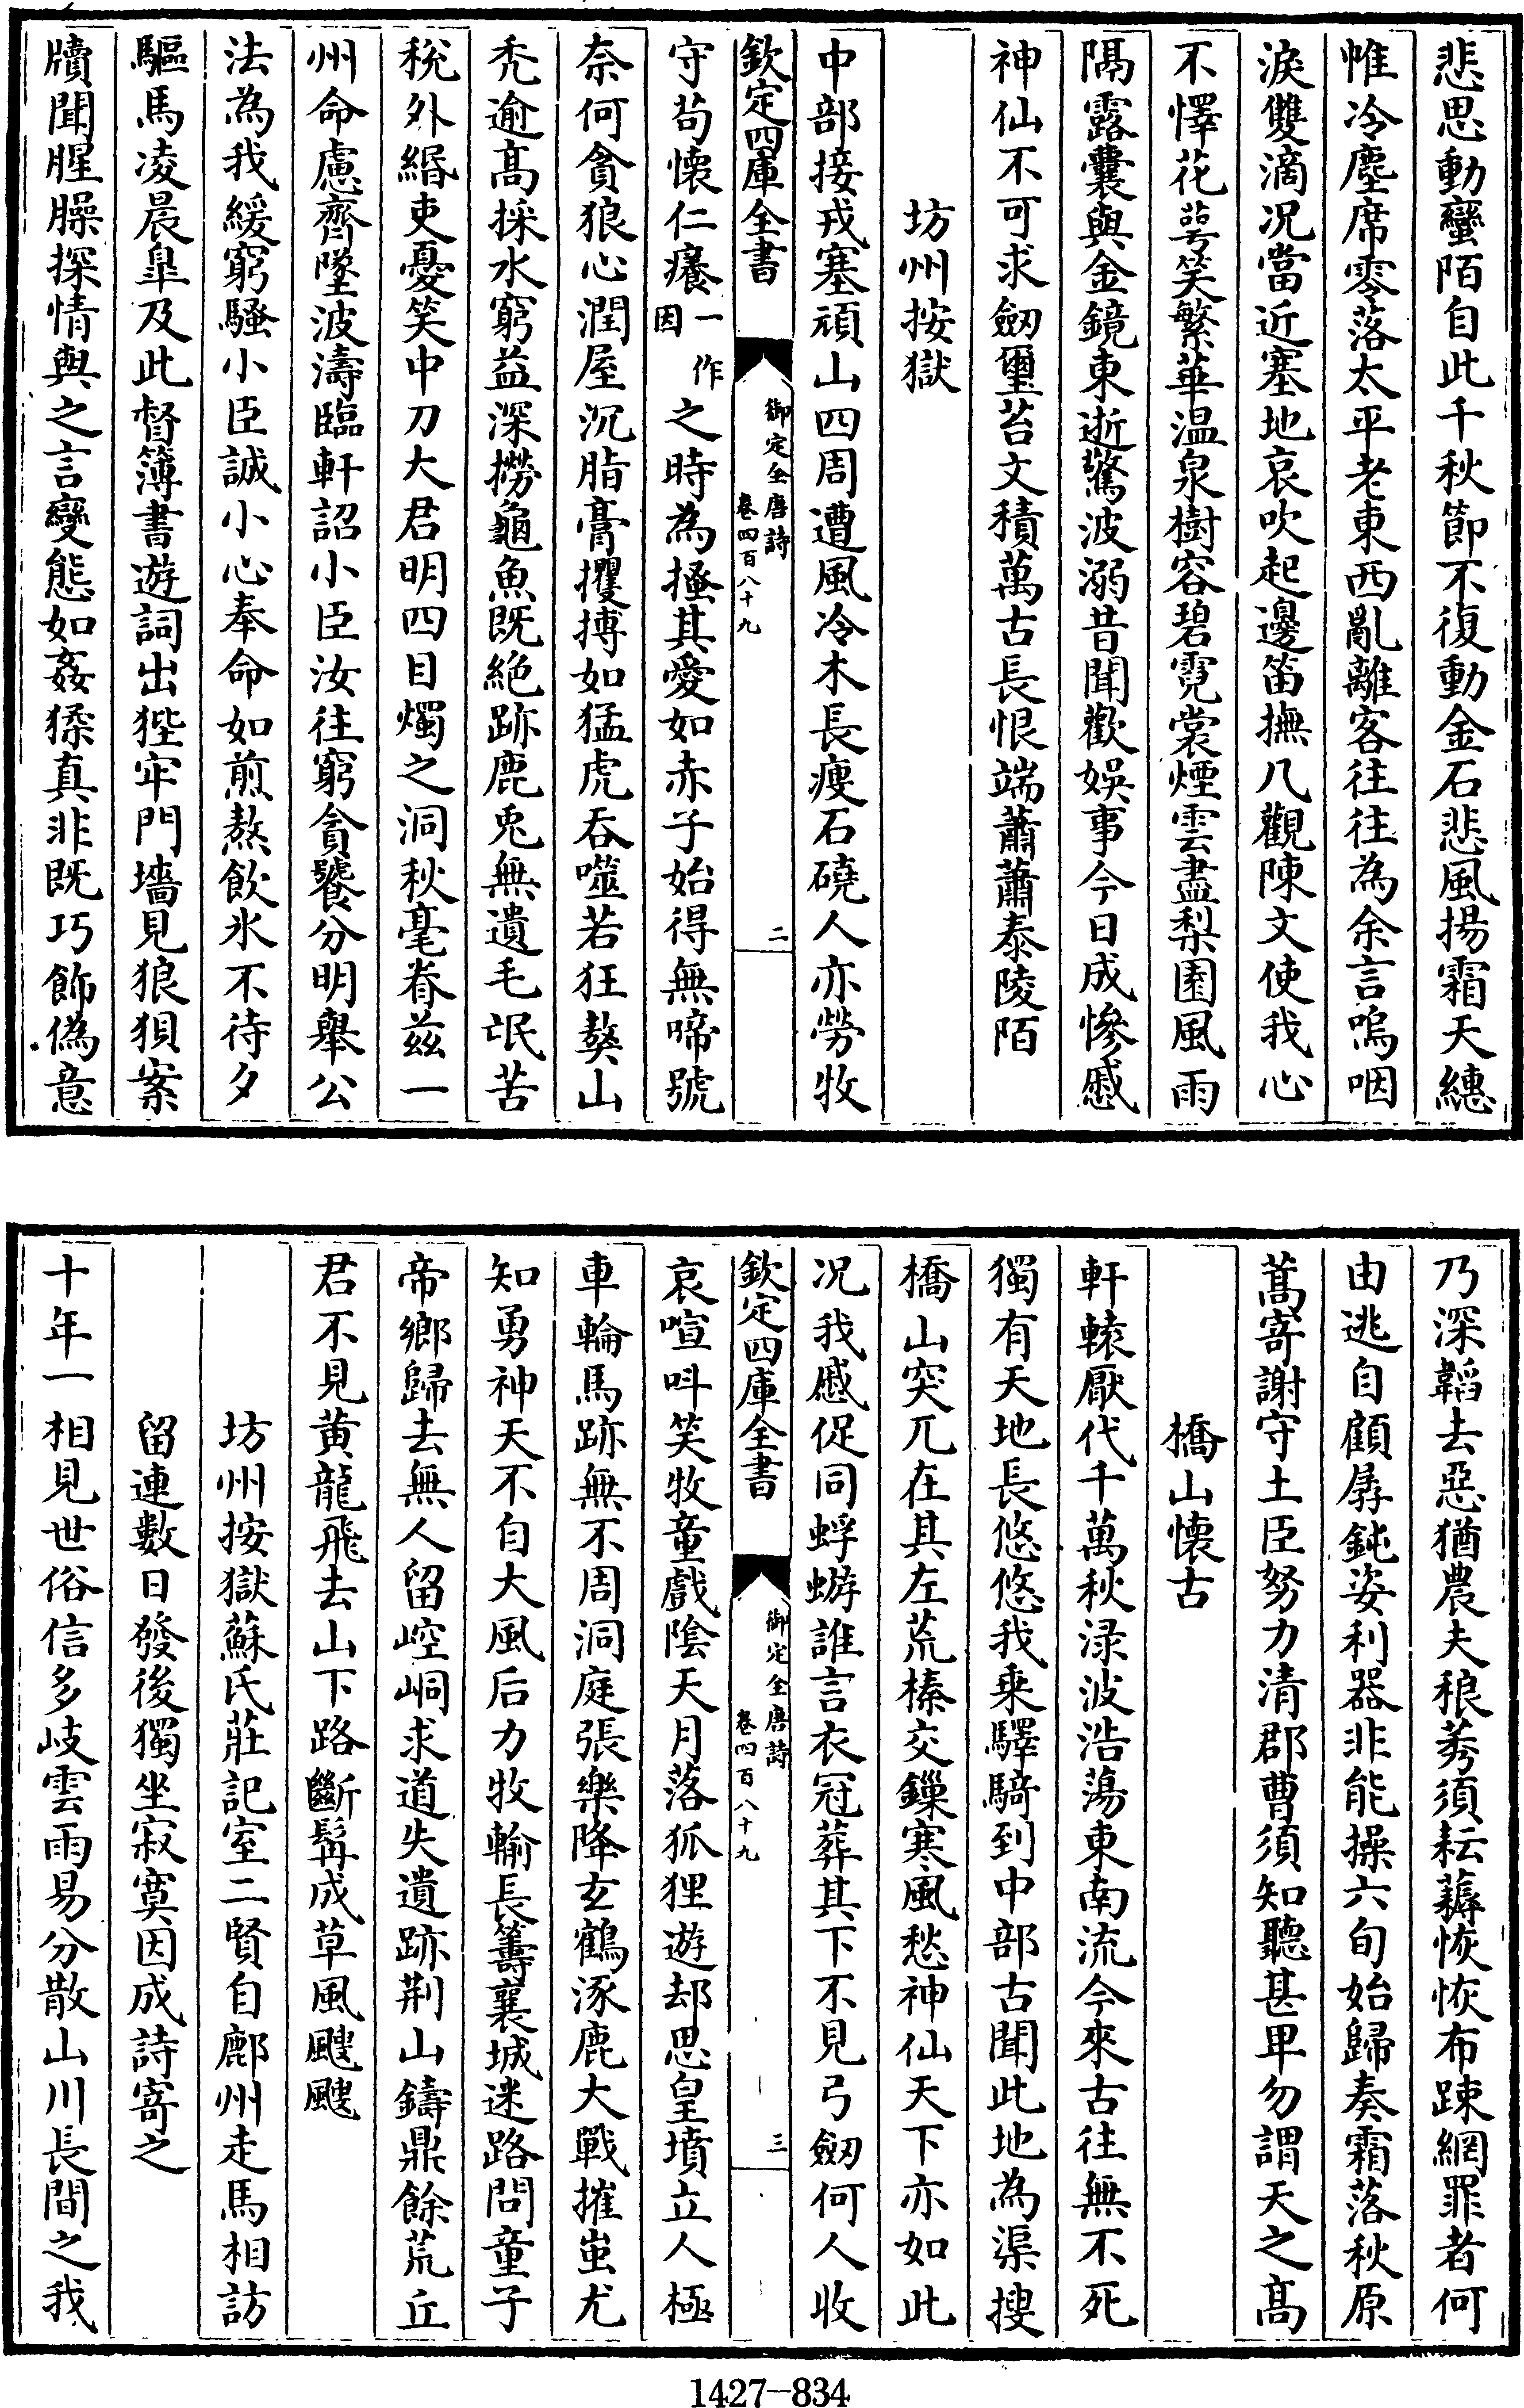 悲思動蠻陌自此千秋節不復動金石悲風揚霜天繐
帷冷塵席零落太平老東西亂離客往往為余言嗚咽
淚雙滴况當近塞地哀吹起邊笛撫八觀陳文使我心
不懌花萼笑繁華温泉樹容碧霓裳煙雲盡梨園風雨
隔露囊與金鏡東逝驚波溺昔聞歡娛事今日成慘慼
神仙不可求劔璽苔文積萬古長恨端蕭蕭泰陵陌
坊州按獄
中部接戎塞頑山四周遭風冷木長瘦石磽人亦勞牧
欽定四庫全書
御定全唐詩
卷四百八十九
二
守苟懷仁癢一作因之時為搔其愛如赤子始得無啼號
奈何貪狼心潤屋沉脂膏攫搏如猛虎吞噬若狂獒山
禿逾髙採水窮益深撈龜魚既絶跡鹿兎無遺毛氓苦
稅外緡吏憂笑中刀大君明四目燭之洞秋毫眷兹一
州命慮齊墜波濤臨軒詔小臣汝往窮貪饕分明舉公
法為我緩窮騷小臣誠小心奉命如煎熬飲氷不待夕
驅馬凌晨臯及此督簿書遊詞出狴牢門墻見狼狽案
牘聞腥臊探情與之言變態如姦猱真非既巧飾偽意
乃深韜去惡猶農夫稂莠須耘薅恢恢布踈網罪者何
由逃自顧孱鈍姿利器非能操六旬始歸奏霜落秋原
蒿寄謝守土臣努力清郡曹須知聽甚卑勿謂天之髙
橋山懷古
軒轅厭代千萬秋渌波浩蕩東南流今來古往無不死
獨有天地長悠悠我乗驛騎到中部古聞此地為渠搜
橋山突兀在其左荒榛交鏁寒風愁神仙天下亦如此
况我慼促同蜉蝣誰言衣冠葬其下不見弓劔何人收
欽定四庫全書
御定全唐詩
卷四百八十九
三
哀喧呌笑牧童戲陰天月落狐狸遊却思皇墳立人極
車輪馬跡無不周洞庭張樂降玄鶴涿鹿大戰摧蚩尤
知勇神天不自大風后力牧輸長籌襄城迷路問童子
帝鄉歸去無人留崆峒求道失遺跡荆山鑄鼎餘荒丘
君不見黄龍飛去山下路斷髯成草風颼颼
坊州按獄蘇氏莊記室二賢自鄜州走馬相訪
留連數日發後獨坐寂寞因成詩寄之
十年一相見世俗信多岐雲雨易分散山川長間之我
1427—834